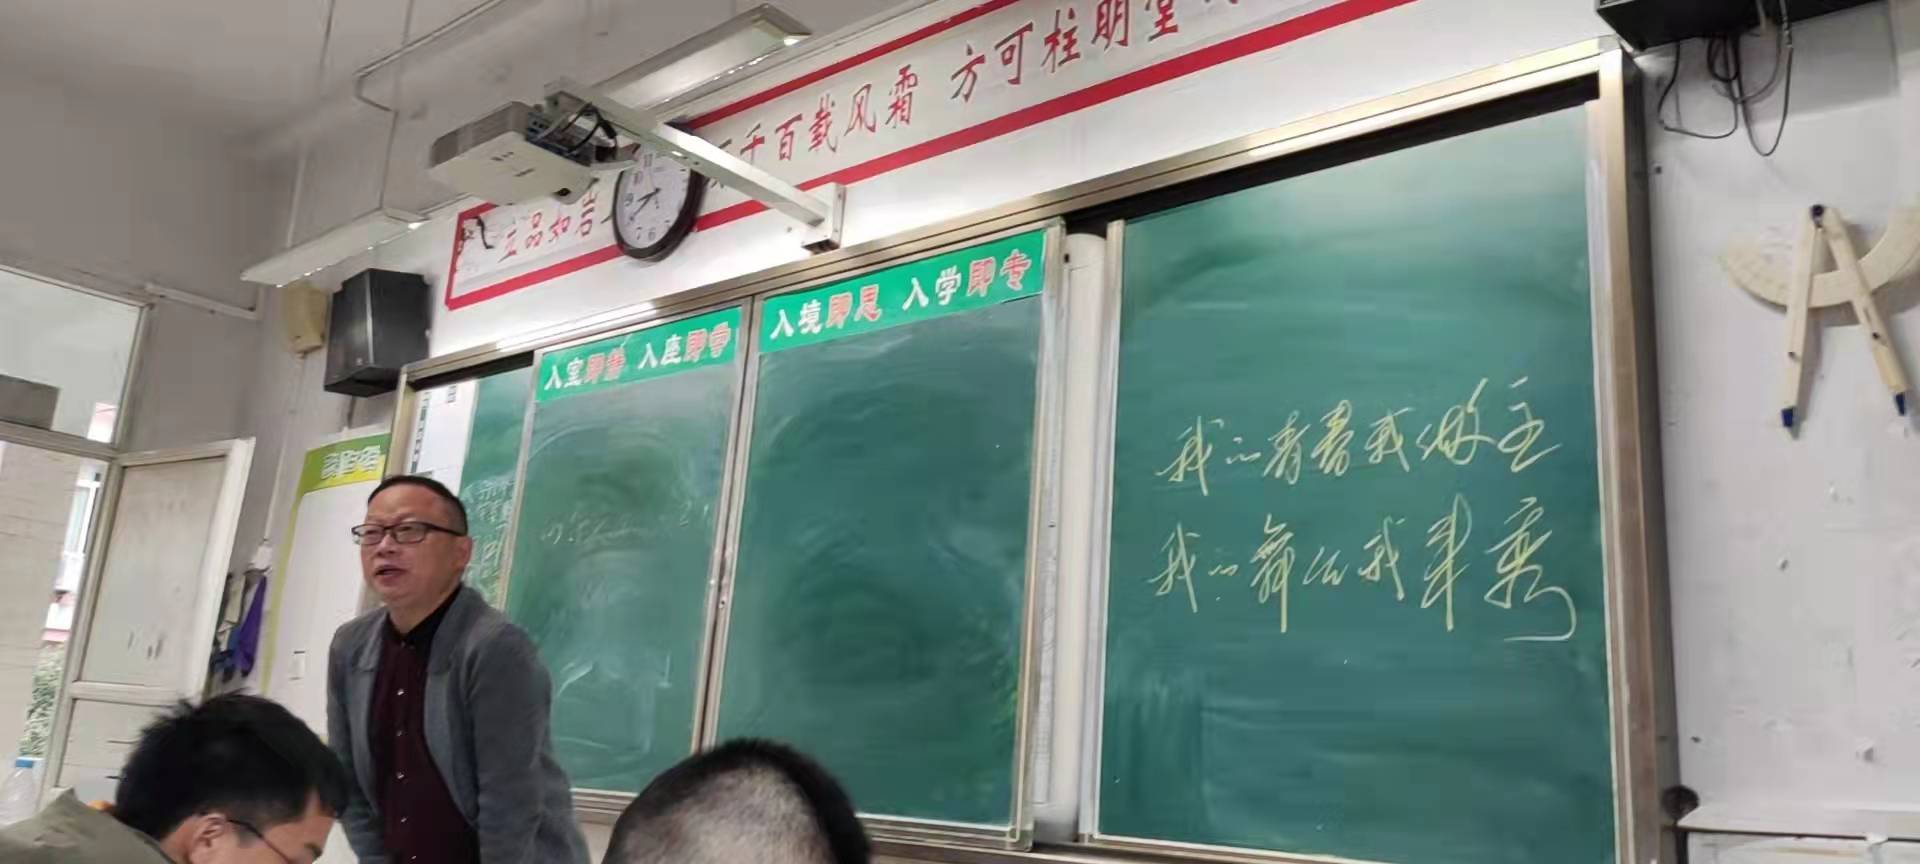 立品如岩 千百载风霜 方可柱明堂
入室即静 入座即学 入境即思 入学即专
我的青春我做主
我的舞台我来秀